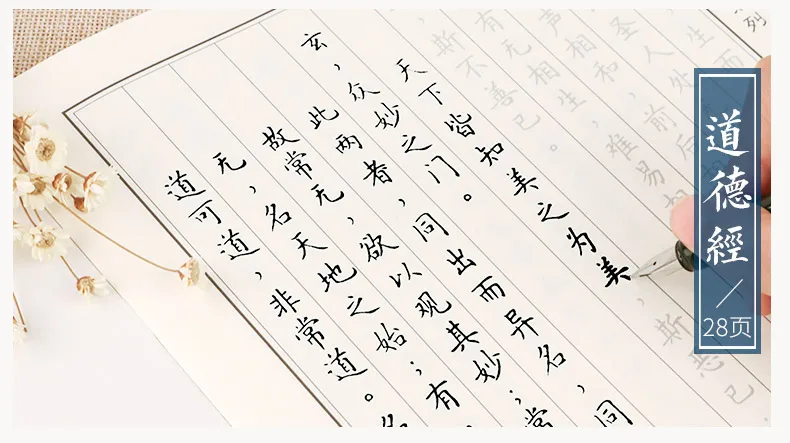 道可道，非常道。名
无，名天地之始；有
故常无，欲以观其妙；常
此两者，同出而异名，同
玄，众妙之门。
天下皆知美之为美，斯恶已
斯不善已。
有无相生，难易
声相和，前后
圣人处
道德經
28页